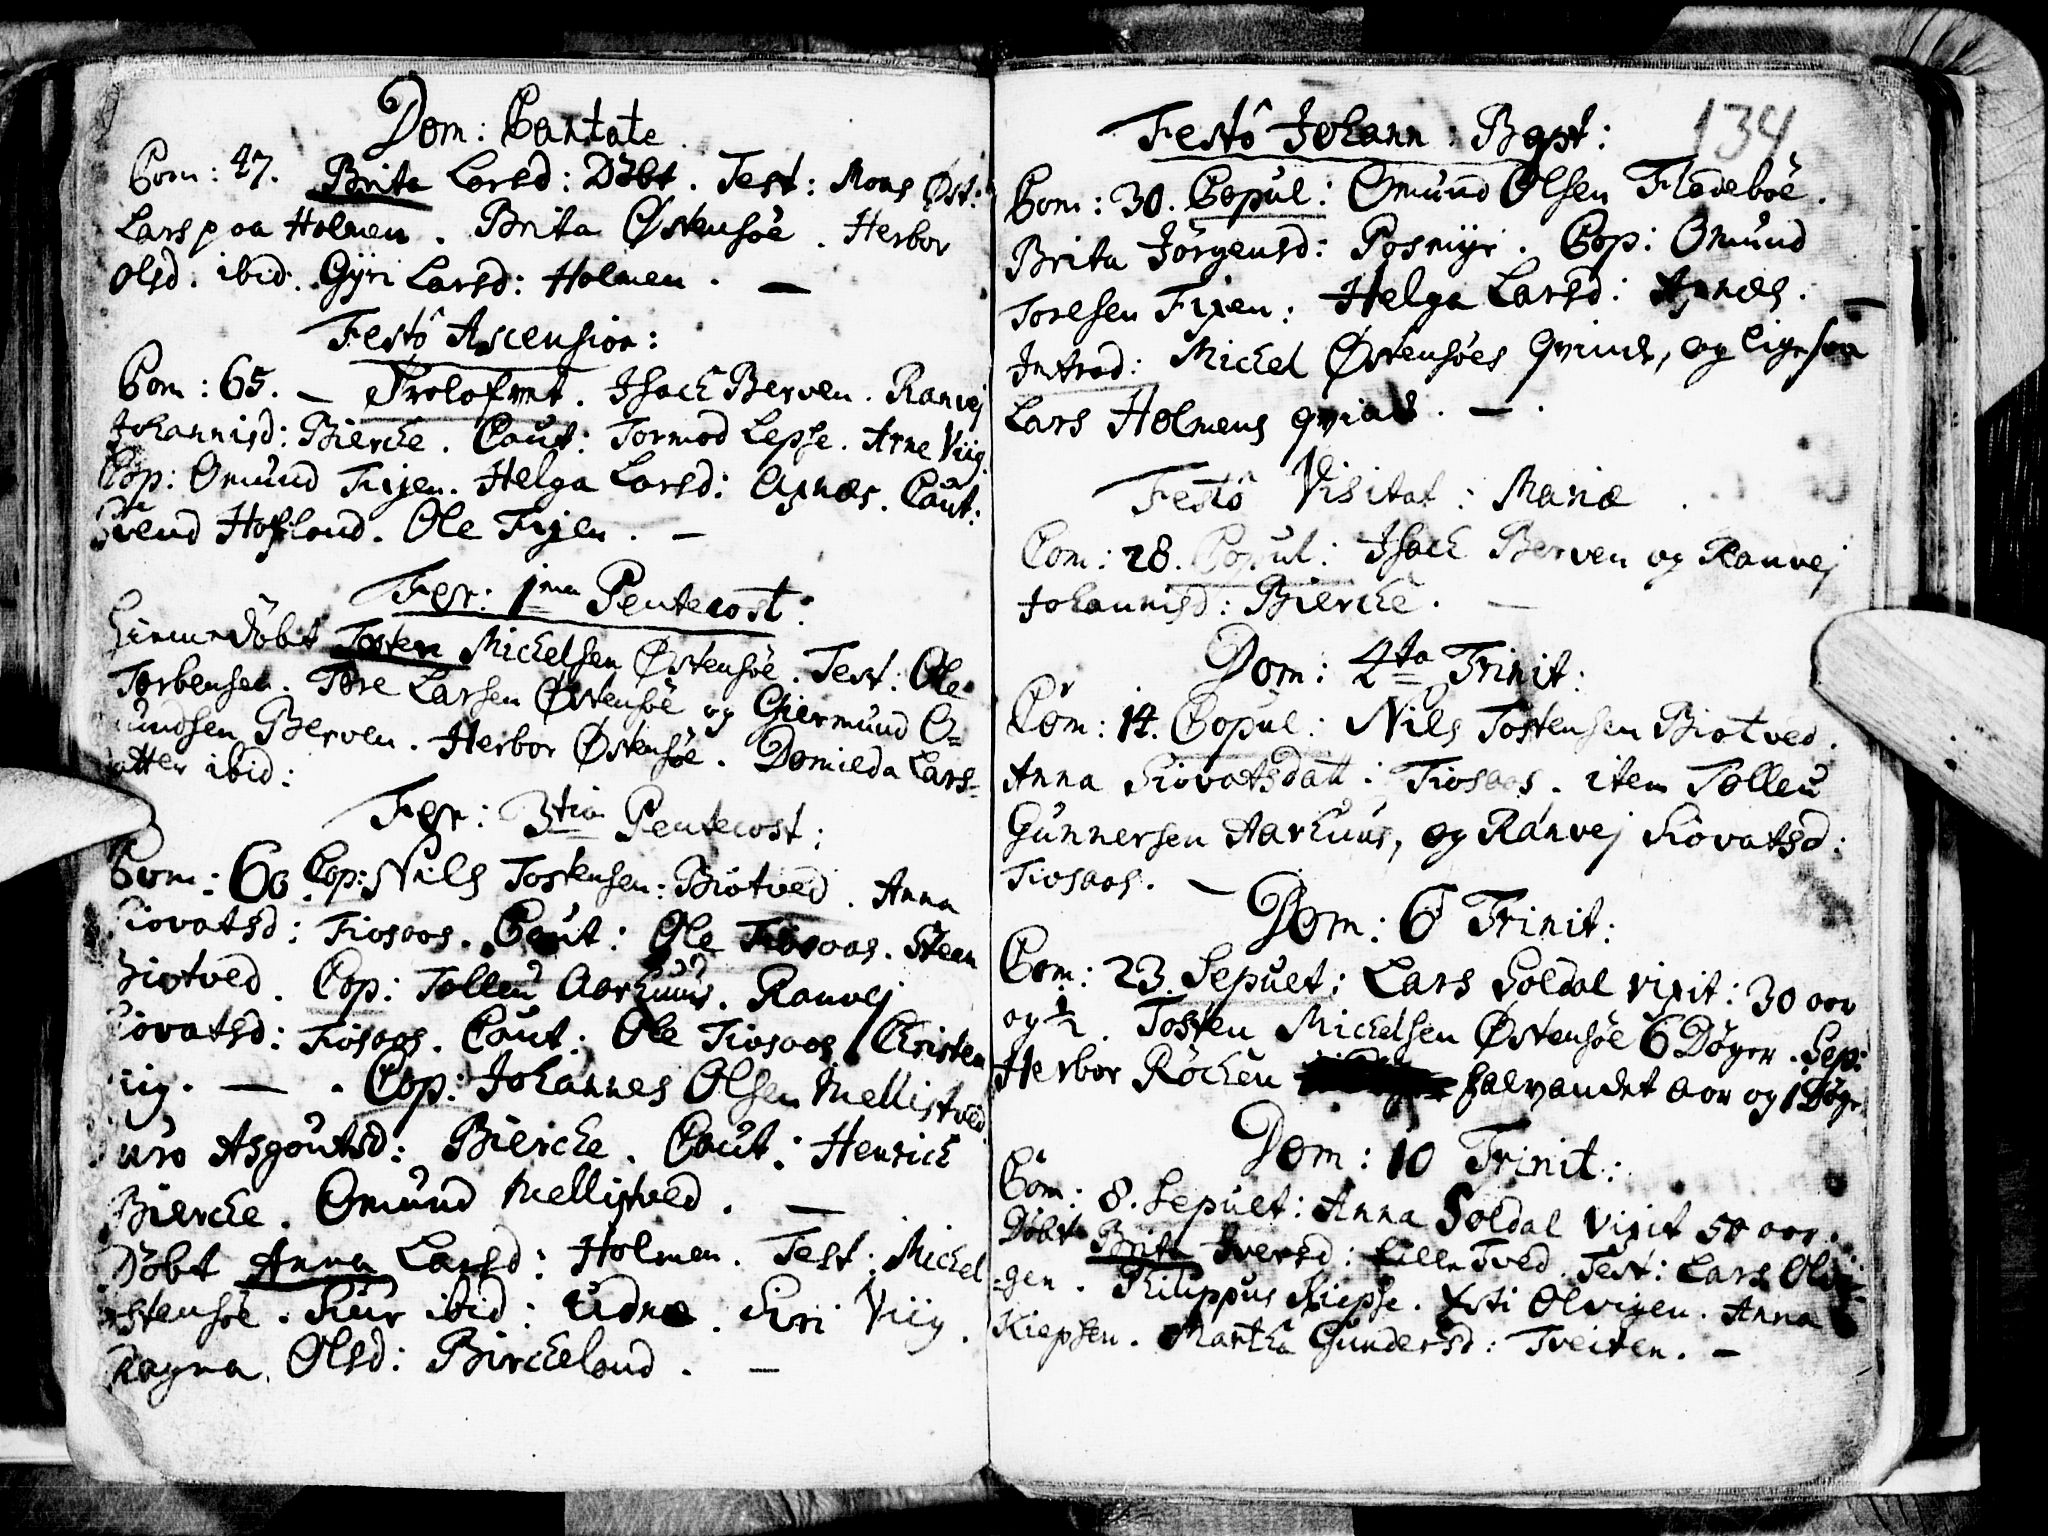 Dom: Cantate.
Com: 47. Brita Larsd: Döbt. Test: Mons Øst:
Lars paa Holmen. Brita Østensöe. Herbor
Olsd. ibid: Gÿri Larsd: Holmen. —
Festô Ascension:
Com: 65. — Trolofvet. Isach Berven. Ranvej
Johannisd: Biercke. Caut: Tormod Lepse. Arne Viig.
Cop: Omund Fixen. Helga Larsd: Axnæs. Caut:
Svend Hofland. Ole Fixen. —
Fer: 1ma Pentecost:
Hiemedöbt Tosten Michelsen Østensöe. Test: Ole
Torbensen. Tore Larsen Østensöe og Giermund O=
mundsen Berven. Herbor Østensöe. Domieda Lars=
datter ibid:
Fer: 3tia Pentecost:
Com: 60. Cop: Nils Tostensen: Biotved. Anna
Siovatsd: Fiosaas. Caut: Ole Fiosaas. Steen
Biotved. Cop: Tolleu Aarhuus. Ranvej
Siovatsd: Fiosaas. Caut: Ole Fiosaas. Christen
Viig. — . Cop: Johannes Olsen Mellistved.
Guro Asgoutsd: Biercke. Caut: Henrich
Biercke. Omund Mellistved. —
Döbt Anna Larsd: Holmen. Test: Michel
Østensöe. Siur ibid: Udnæ. Siri Viig.
Ragna Olsd: Birckeland. —
134
Festô Johann: Bapt:
Com: 30. Copul: Omund Olsen Fladeböe.
Brita Jörgensd: Posmÿr. Cop: Omund
Toresen Fixen: Helga Larsd: Axnæs. —
Introd: Michel Østensöes Qvinde, og ligesaa
Lars Holmens qvinde. — .
Festô Visitat: Mariæ.
Com: 28. Copul: Isach Berven og Ranvej
Johannisd: Biercke. —
Dom: 4ta Trinit:
Com: 14. Copul: Nils Tostensen Biotved.
Anna Siovatsdatt: Fiosaas. item Tolleu
Gunnersen Aarhuus, og Ranvej Siovatsd:
Fiosaas. —
Dom: 6 Trinit:
Com: 23. Sepult: Lars Soldal vixit: 30 aar
og ½. Tosten Michelsen Østensöe 6 Döger. Sep:
Herbor Röchen halvandet aar og 1 Döger
Dom: 10 Trinit:
Com: 8. Sepult: Anna Soldal vixit 50 aar.
Döbt Brita Iversd: Lille Tved. Test: Lars Olvi-
-gen. Philippus Kiepse. Xsti Olvigen. Anna
Kiepsen. Martha Gundersd: Tveiten. —